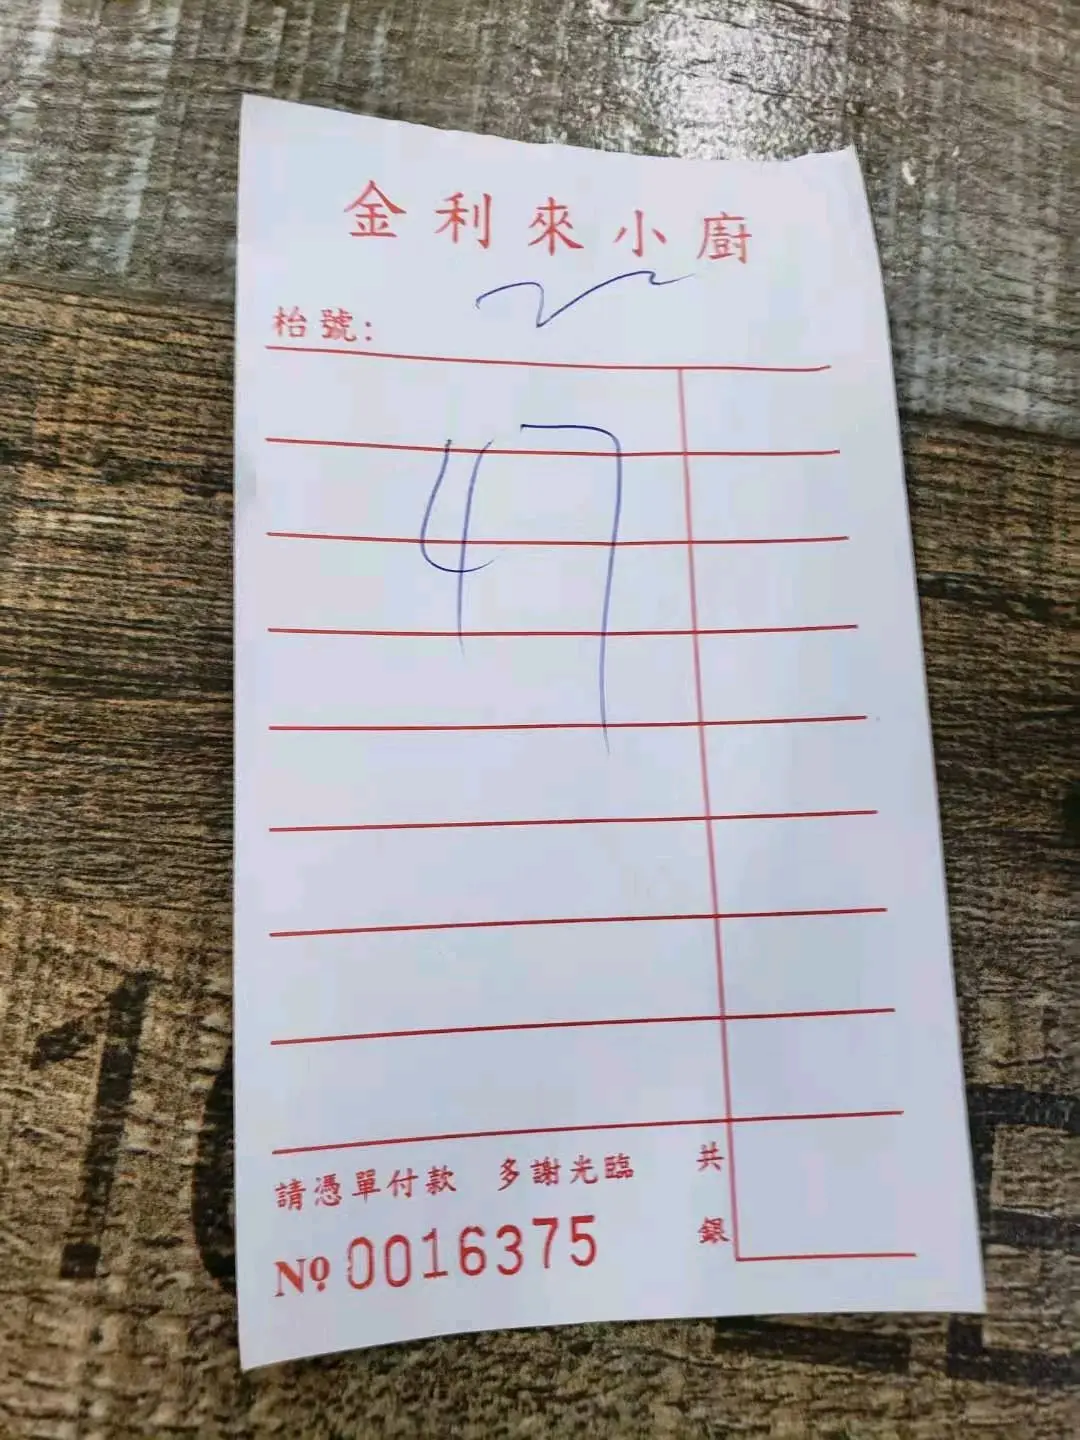 金利來小廚
枱號:
47
請憑單付款 多謝光臨
共銀
Nº 0016375